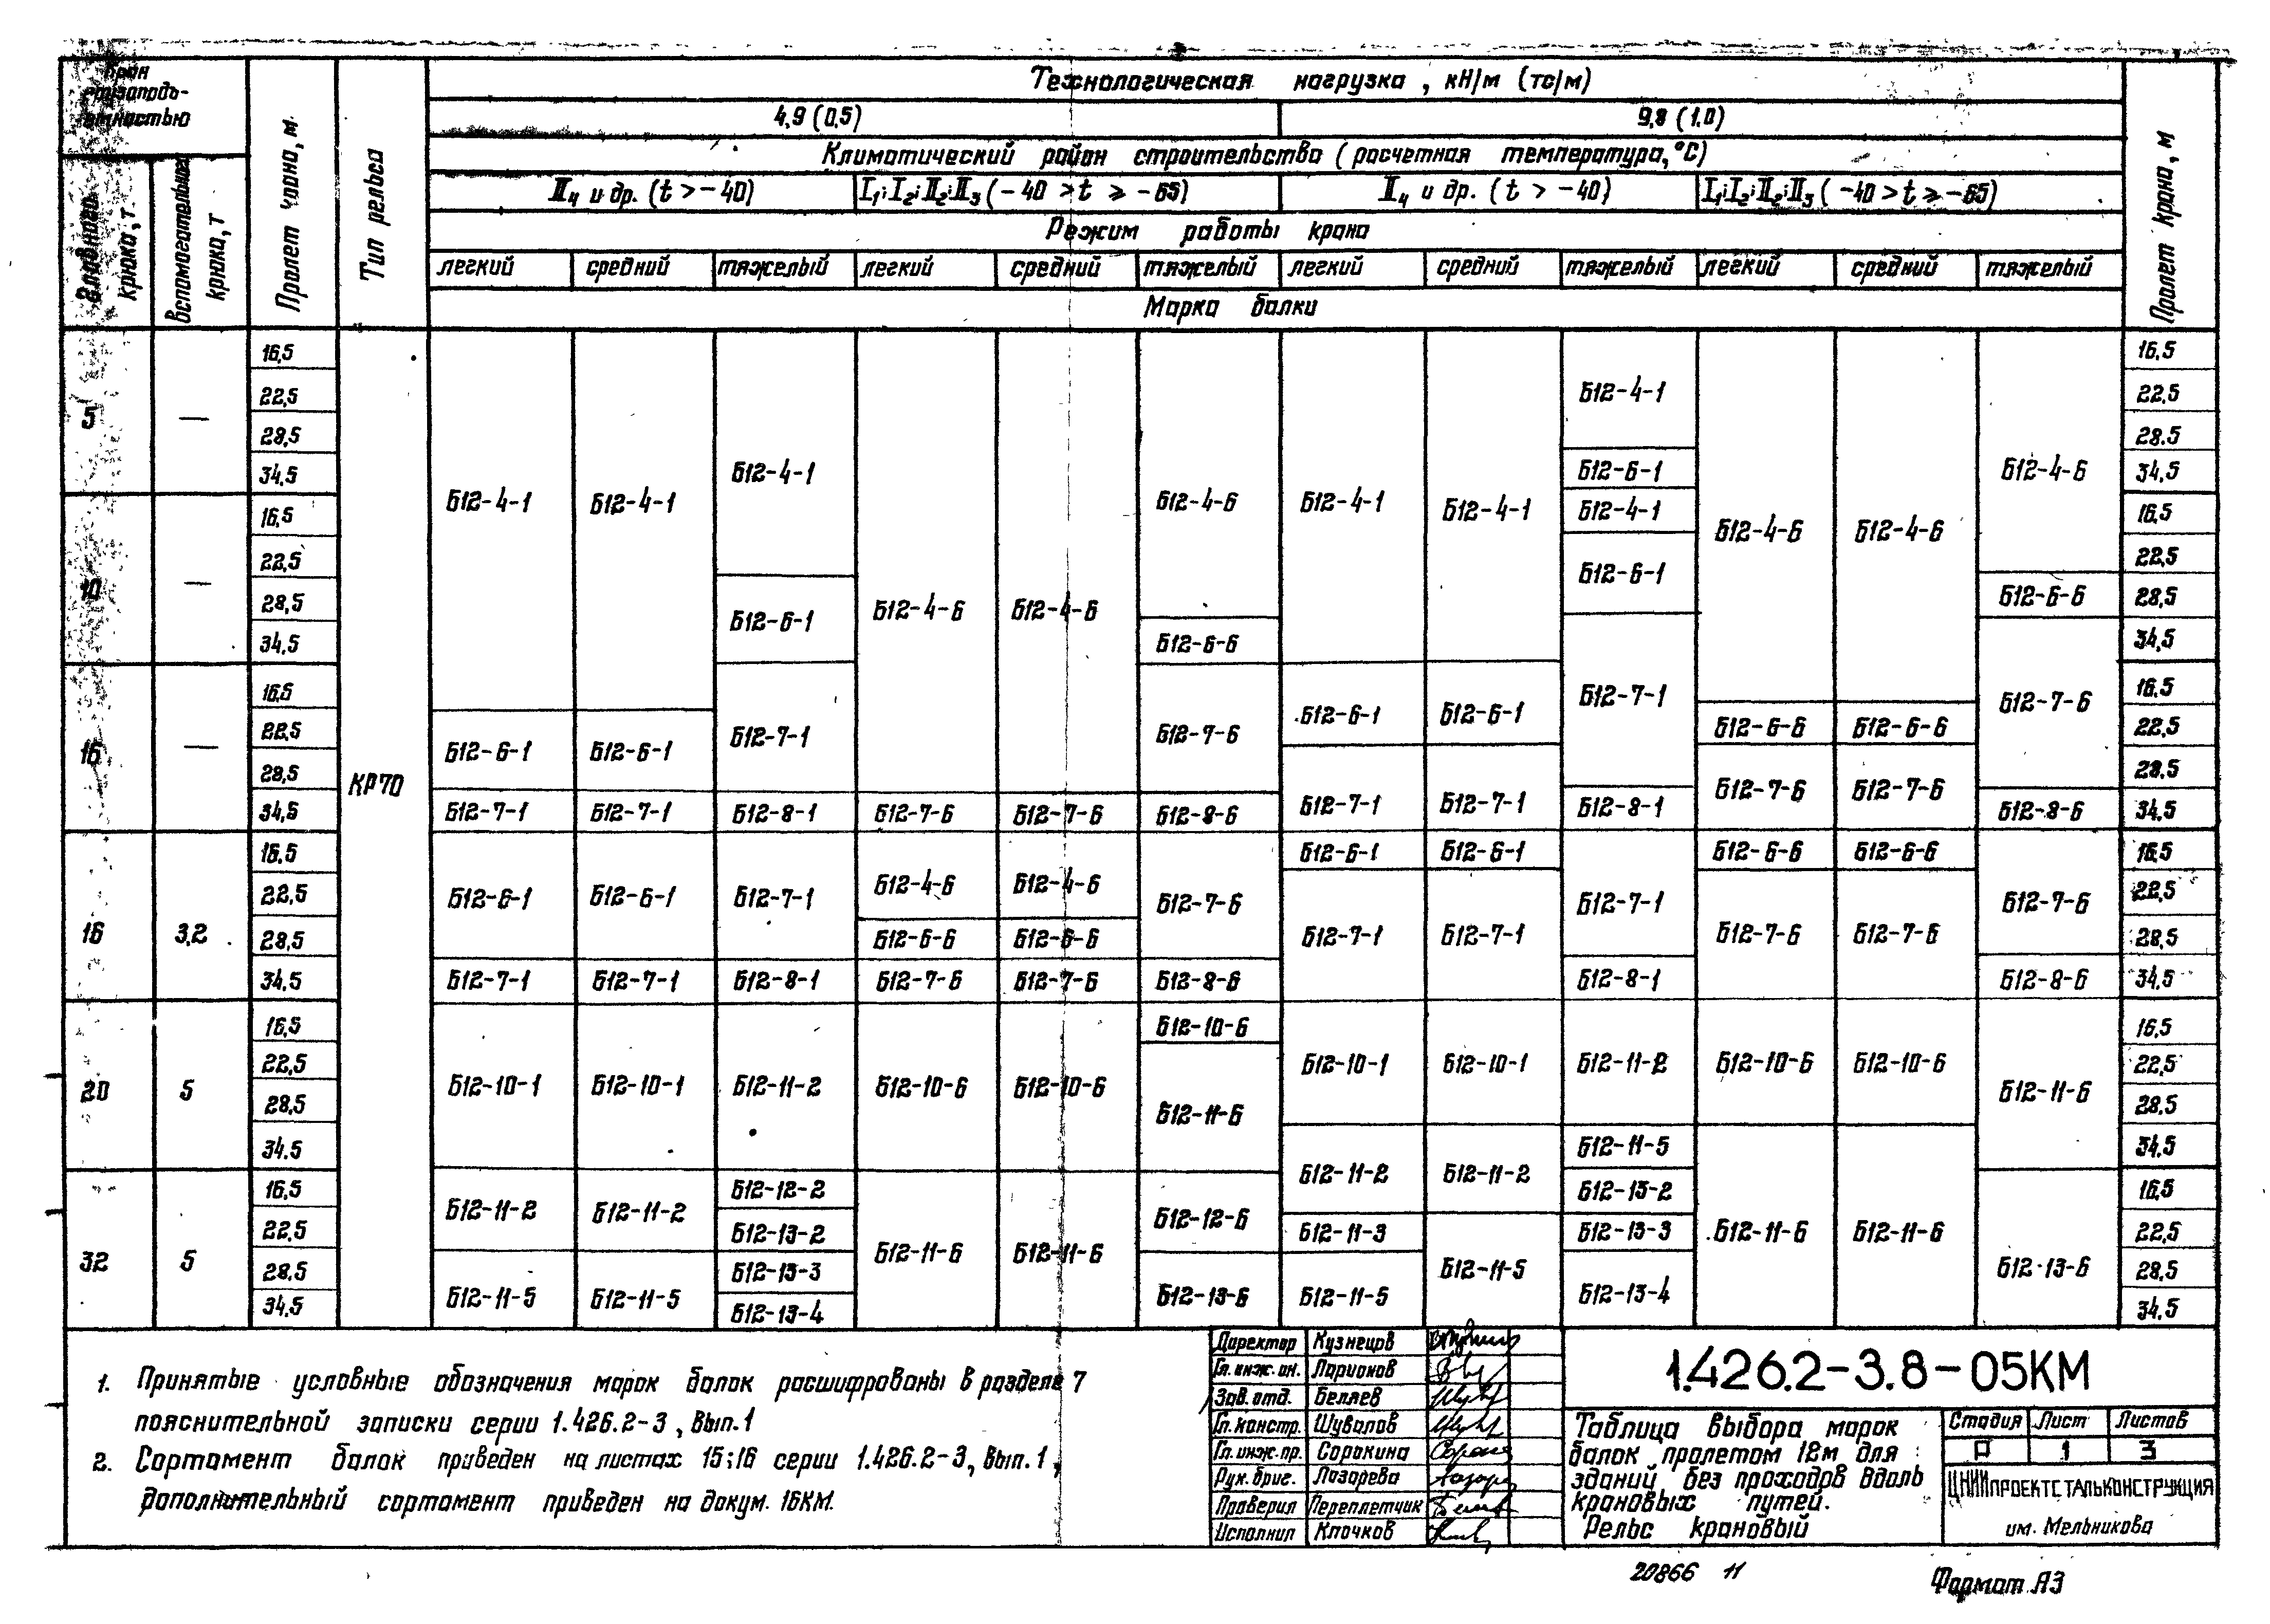 Кран грузоподъ-
емностью
Главного крюка, т
Вспомогательного крюка, т
Пролет крана, м
Тип рельса
Технологическая нагрузка, кН/м (тс/м)
4,9 (0,5) 9,8 (1,0)
Климатический район строительства (расчетная температура, °С)
II₄ и др. (t > -40) I₁; I₂; II₂; II₃ (-40 > t ⩾ -65) II₄ и др. (t > -40) I₁; I₂; II₂; II₃ (-40 > t ⩾ -65)
Режим работы крана
легкий средний тяжелый легкий средний тяжелый легкий средний тяжелый легкий средний тяжелый
Марка балки
Пролет крана, м
16,5 16,5
22,5 Б12-4-1 22,5
5 —
28,5 28,5
34,5 Б12-4-1 Б12-6-1 Б12-4-6 34,5
Б12-4-1 Б12-4-1 Б12-4-6 Б12-4-1 Б12-4-1
16,5 Б12-4-1 16,5
22,5 Б12-4-6 Б12-4-6 22,5
10 — Б12-6-1
28,5 Б12-6-1 Б12-4-6 Б12-4-6 Б12-6-6 28,5
34,5 Б12-6-6 34,5
16,5 Б12-7-1 Б12-7-6 16,5
22,5 Б12-7-1 Б12-7-6 Б12-6-1 Б12-6-1 Б12-6-6 Б12-6-6 22,5
16 — Б12-6-1 Б12-6-1
28,5 КР70 Б12-7-6 Б12-7-6 28,5
34,5 Б12-7-1 Б12-7-1 Б12-8-1 Б12-7-6 Б12-7-6 Б12-8-6 Б12-7-1 Б12-7-1 Б12-8-1 Б12-8-6 34,5
16,5 Б12-6-1 Б12-6-1 Б12-6-6 Б12-6-6 16,5
22,5 Б12-6-1 Б12-6-1 Б12-7-1 Б12-4-6 Б12-4-6 Б12-7-6 Б12-7-1 Б12-7-6 22,5
16 3,2 28,5 Б12-6-6 Б12-6-6 Б12-7-1 Б12-7-1 Б12-7-6 Б12-7-6 28,5
34,5 Б12-7-1 Б12-7-1 Б12-8-1 Б12-7-6 Б12-7-6 Б12-8-6 Б12-8-1 Б12-8-6 34,5
16,5 Б12-10-6 16,5
22,5 Б12-10-1 Б12-10-1 Б12-11-2 Б12-10-6 Б12-10-6 22,5
20 5 28,5 Б12-10-1 Б12-10-1 Б12-11-2 Б12-10-6 Б12-10-6 Б12-11-6 Б12-11-6 28,5
34,5 Б12-11-5 34,5
16,5 Б12-12-2 Б12-11-2 Б12-11-2 Б12-13-2 16,5
22,5 Б12-11-2 Б12-11-2 Б12-13-2 Б12-12-6 Б12-11-3 Б12-13-3 Б12-11-6 Б12-11-6 22,5
32 5 28,5 Б12-13-3 Б12-11-6 Б12-11-6 Б12-11-5 Б12-13-6 28,5
34,5 Б12-11-5 Б12-11-5 Б12-13-4 Б12-13-6 Б12-11-5 Б12-13-4 34,5
1. Принятые условные обозначения марок балок расшифрованы в разделе 7
пояснительной записки серии 1.426.2-3, Вып.1
2. Сортамент балок приведен на листах 15; 16 серии 1.426.2-3, Вып. 1,
дополнительный сортамент приведен на докум. 16КМ.
Директор Кузнецов
Гл. инж. ин. Ларионов
Зав. отд. Беляев
Гл. констр. Шувалов
Гл. инж. пр. Сорокина
Рук. бриг. Лазарева
Проверил Переплетчик
Исполнил Клочков
1.426.2-3.8-05КМ
Таблица выбора марок
балок пролетом 12м для
зданий без проходов вдоль
крановых путей.
Рельс крановый
Стадия Лист Листов
Р 1 3
ЦНИИПРОЕКТСТАЛЬКОНСТРУКЦИЯ
им. Мельникова
20866 11
Формат А3